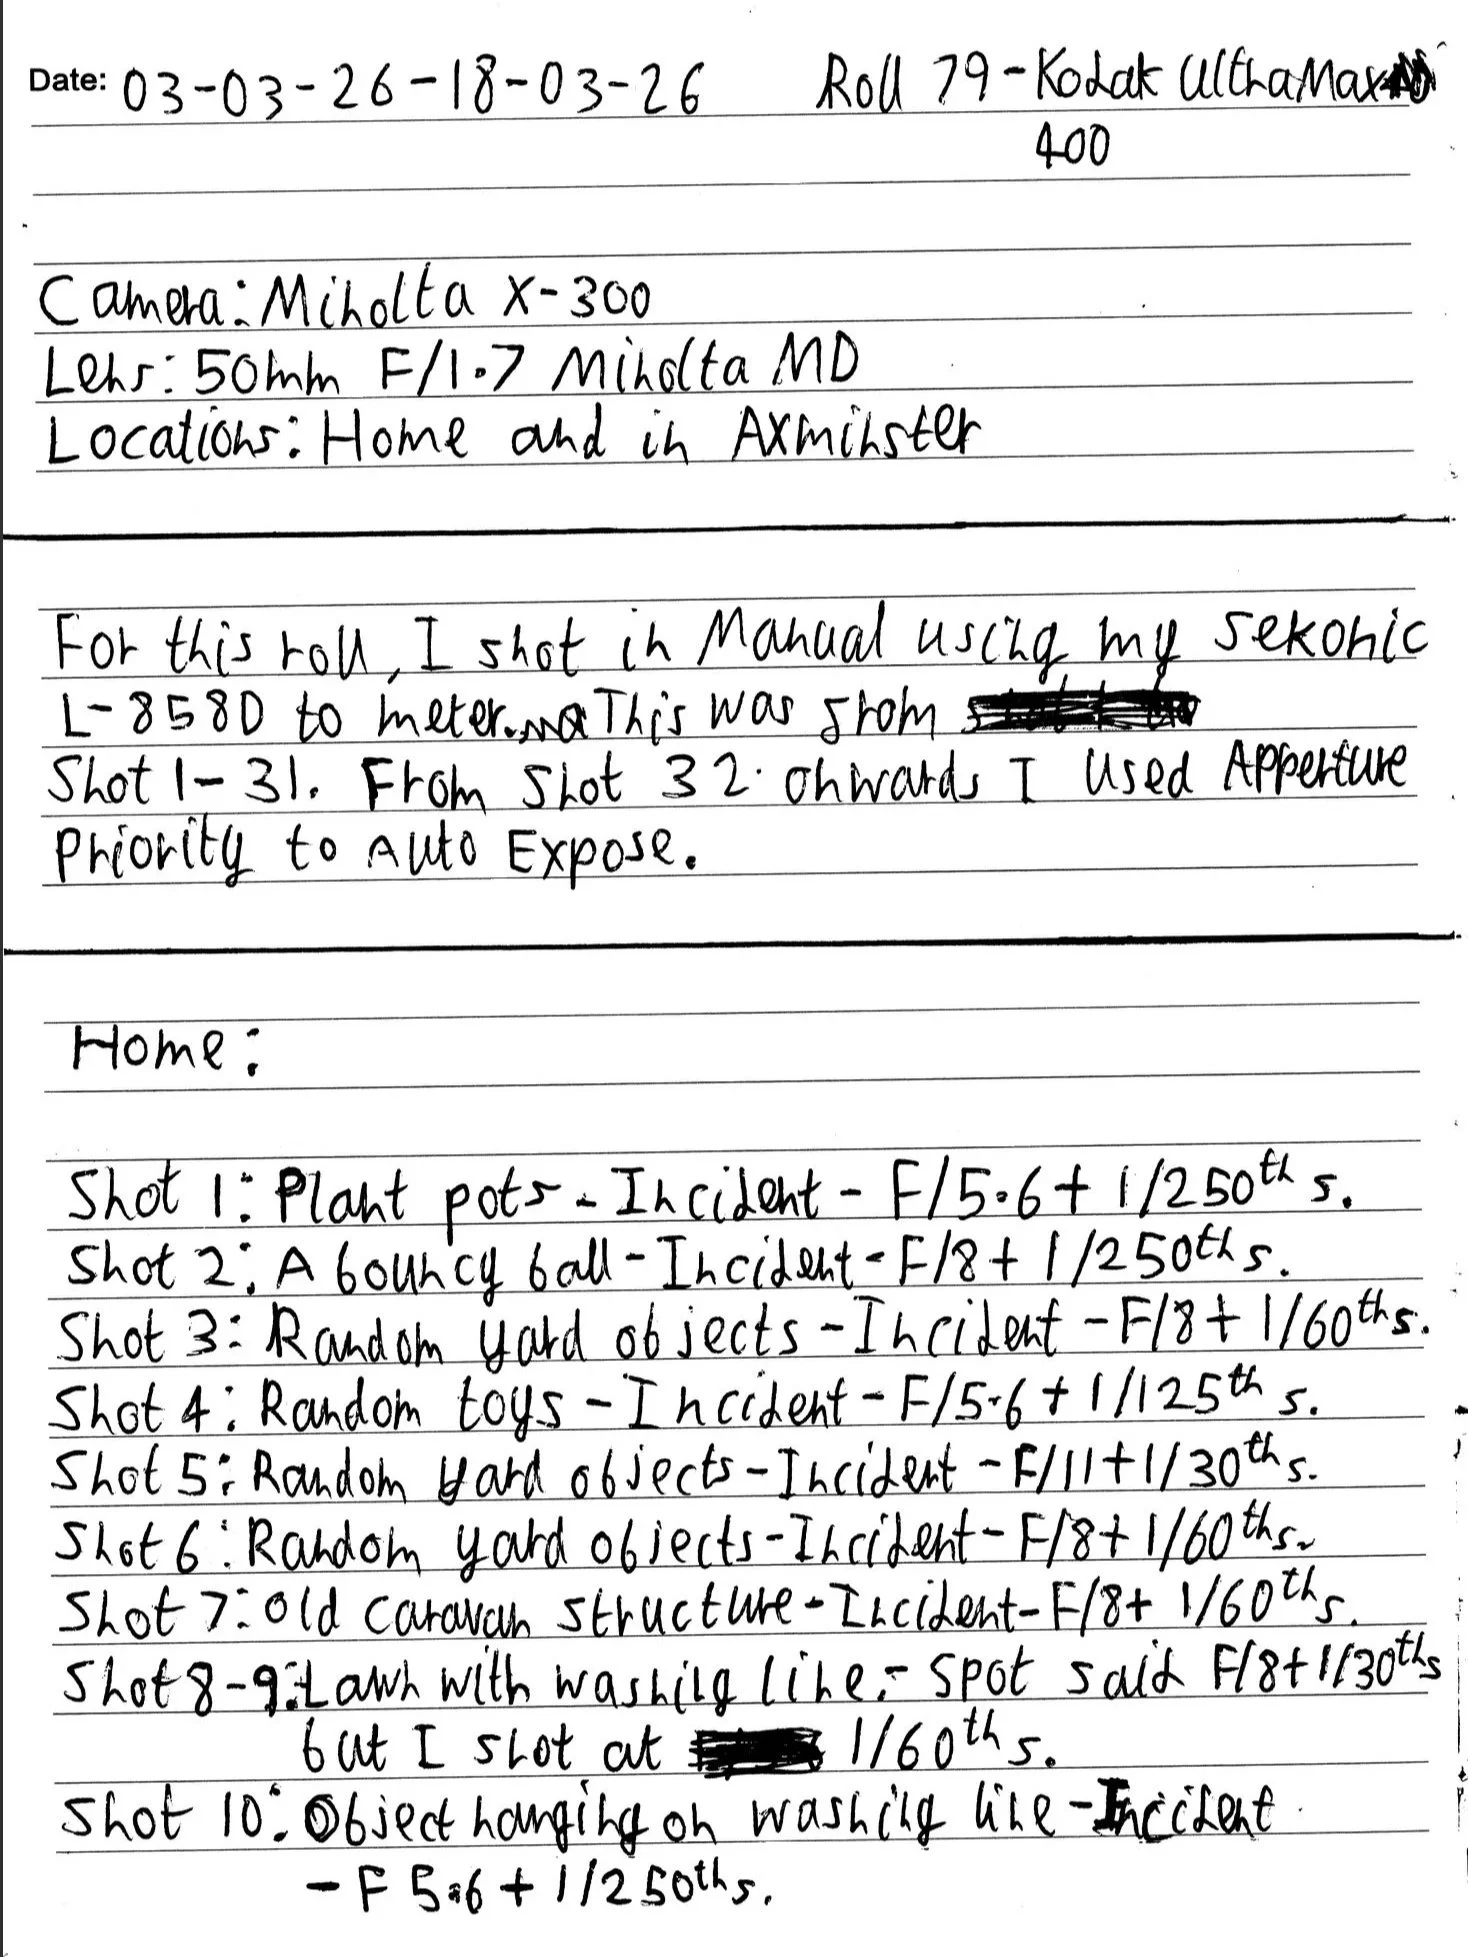 Date: 03-03-26-18-03-26 Roll 79-Kodak UltraMax
400
Camera: Minolta X-300
Lens: 50mm F/1.7 Minolta MD
Locations: Home and in Axminster
For this roll, I shot in Manual using my Sekonic
L-858D to meter. This was from
Shot 1-31. From Shot 32 onwards I used Apperture
Priority to Auto Expose.
Home:
Shot 1: Plant pots - Incident - F/5.6 + 1/250th s.
Shot 2: A bouncy ball - Incident - F/8 + 1/250ths.
Shot 3: Random yard objects - Incident - F/8 + 1/60ths.
Shot 4: Random toys - Incident - F/5.6 + 1/125th s.
Shot 5: Random yard objects - Incident - F/11 + 1/30ths.
Shot 6: Random yard objects - Incident - F/8 + 1/60ths.
Shot 7: Old caravan structure - Incident - F/8 + 1/60ths.
Shot 8-9: Lawn with washing line - Spot said F/8 + 1/30ths
but I shot at 1/60th s.
Shot 10: Object hanging on washing line - Incident
- F 5.6 + 1/250ths.